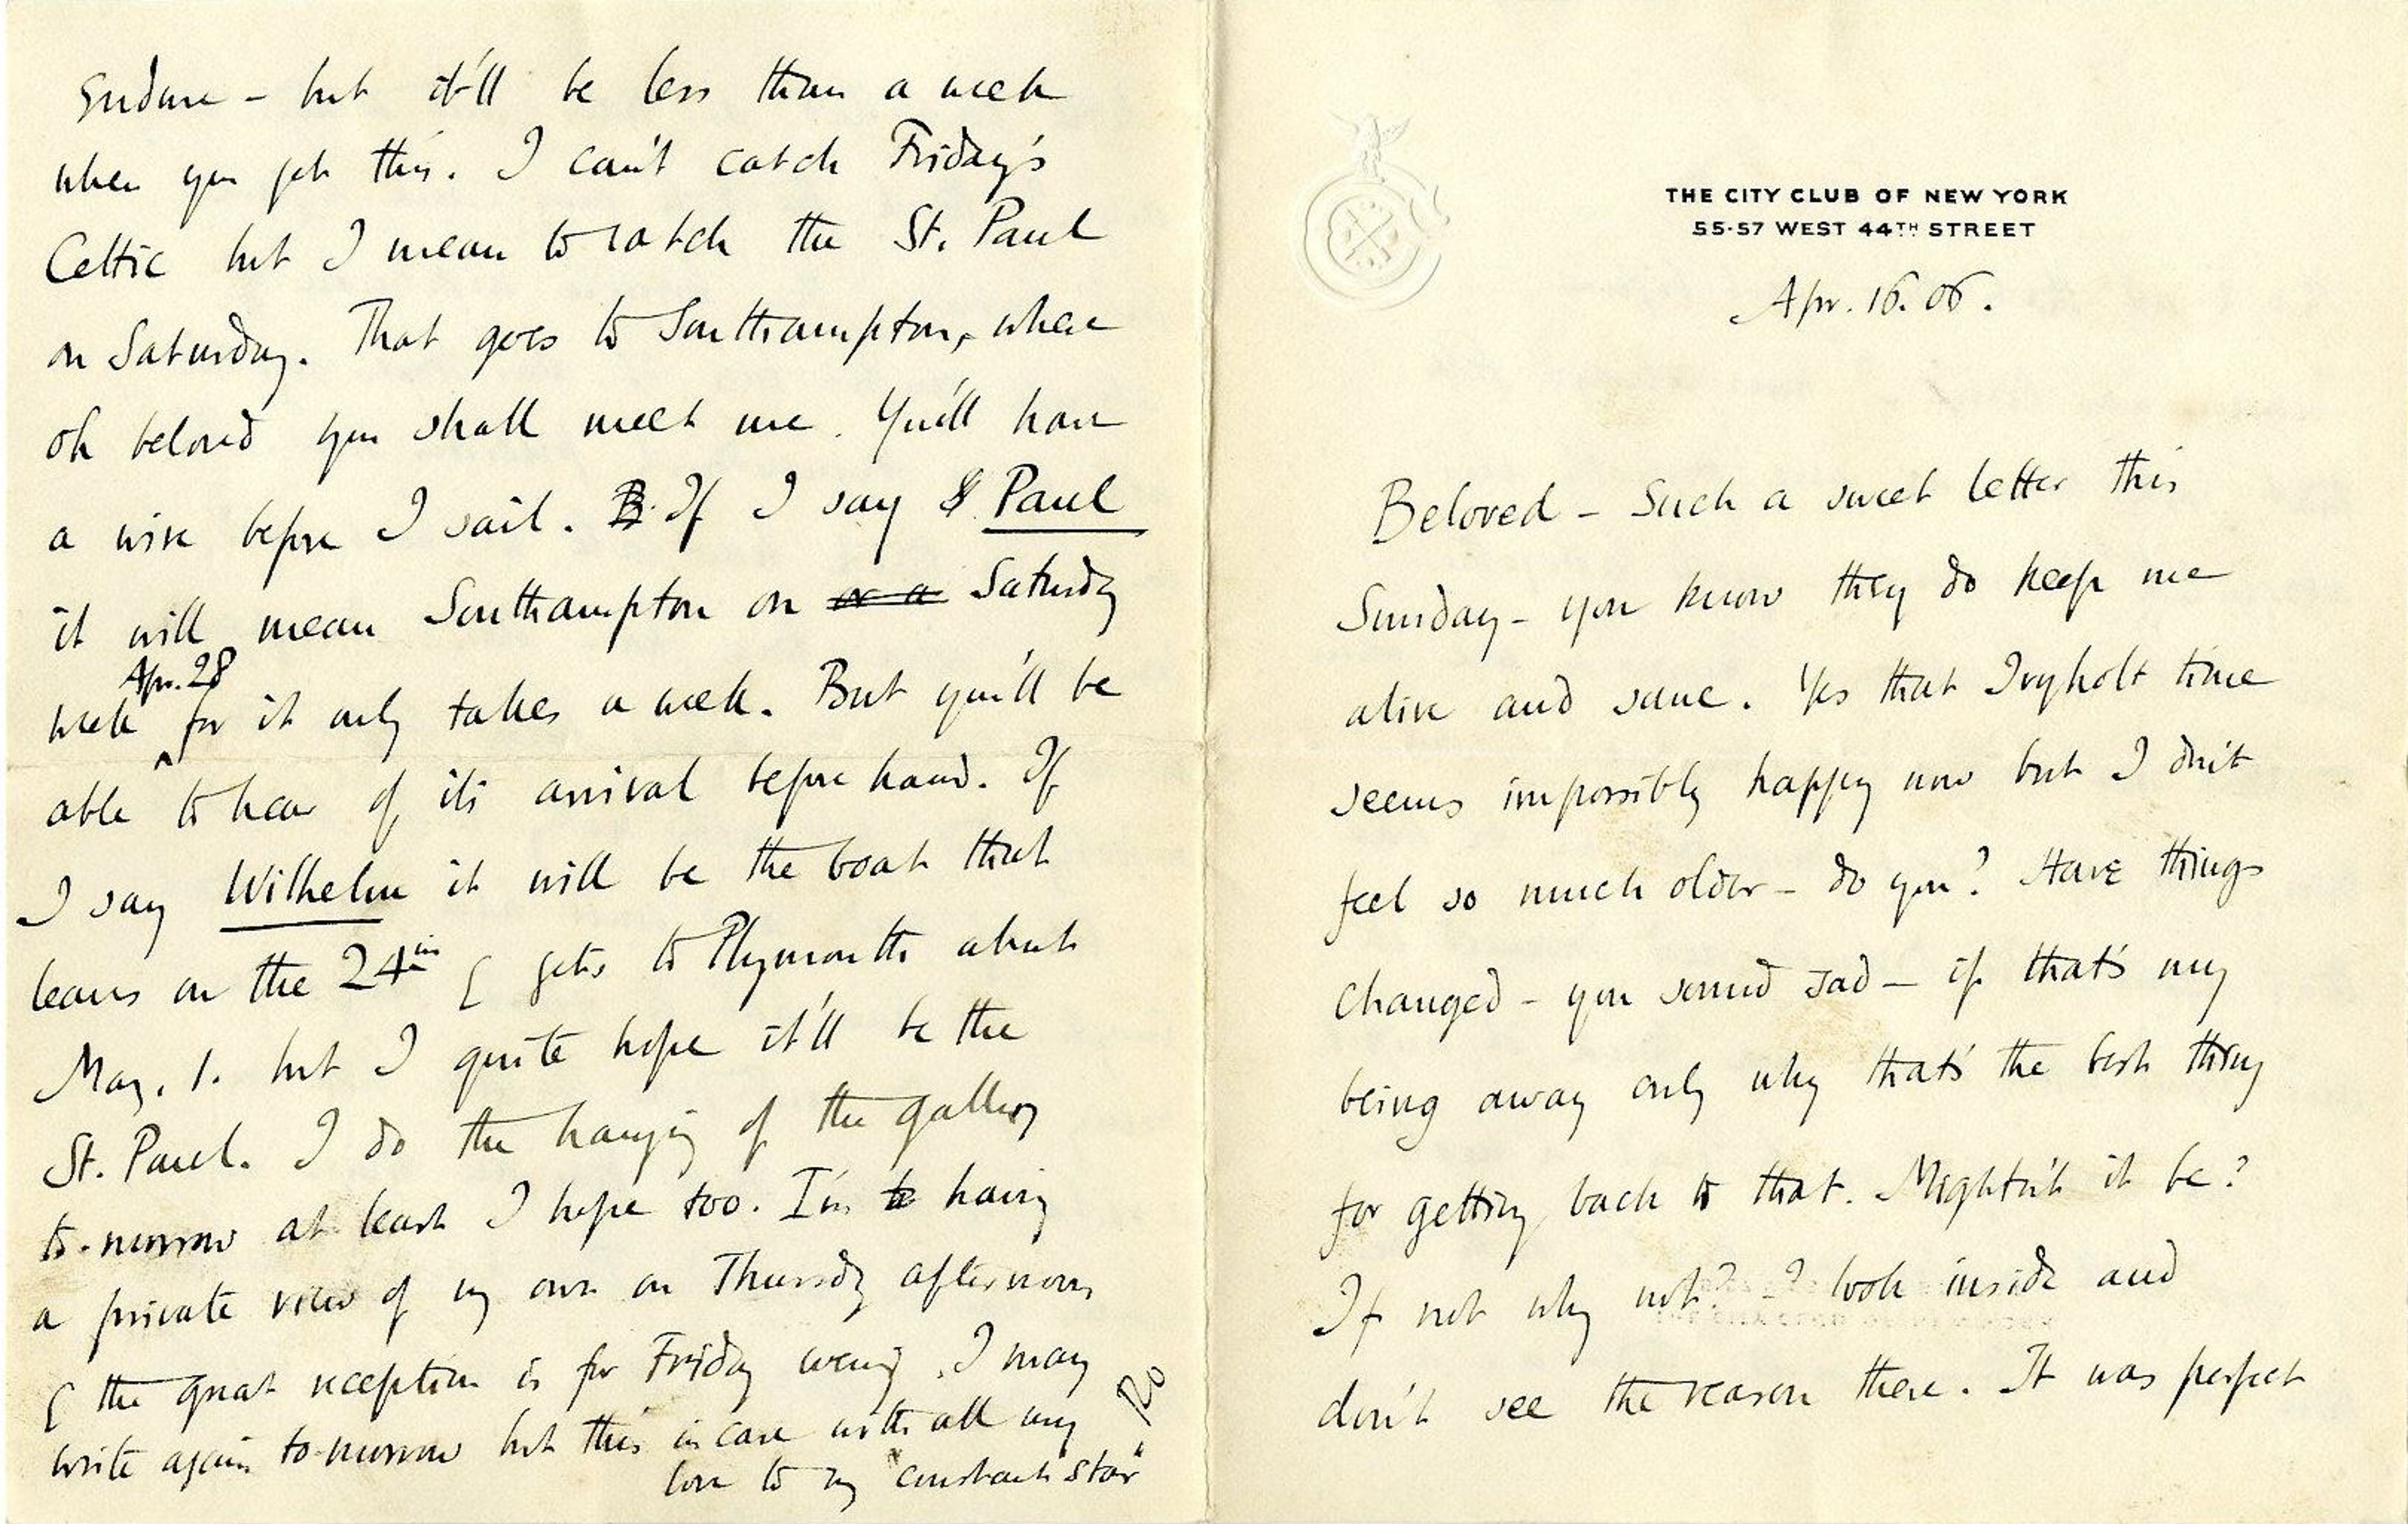 THE CITY CLUB OF NEW YORK
55-57 WEST 44TH STREET
Apr. 16. 06.
Beloved – Such a sweet letter this
Sunday – you know they do keep me
alive and sane. Yes that Ivyholt time
seems impossibly happy now but I don't
feel so much older – do you? Have things
changed – you sound sad – if that's my
being away only why that's the best thing
for getting back to that. Mightn't it be?
If not why not? I look inside and
don't see the reason there. It was perfect
Endure – but it'll be less than a week
when you get this. I can't catch Friday's
Celtic but I mean to catch the St. Paul
on Saturday. That goes to Southampton, where
oh beloved you shall meet me. You'll have
a wire before I sail. B. If I say S. Paul
it will mean Southampton on or a Saturday
Apr. 28
week for it only takes a week. But you'll be
able to hear of its arrival before hand. If
I say Wilhelm it will be the boat that
leaves on the 24th & gets to Plymouth about
May. 1. but I quite hope it'll be the
St. Paul. I do the hanging of the gallery
to-morrow at least I hope too. I'm to having
a private view of my own on Thursdy afternoon
& the great reception is for Friday evening. I may
write again to-morrow but this in case with all my
love to my "constant star"
Ro